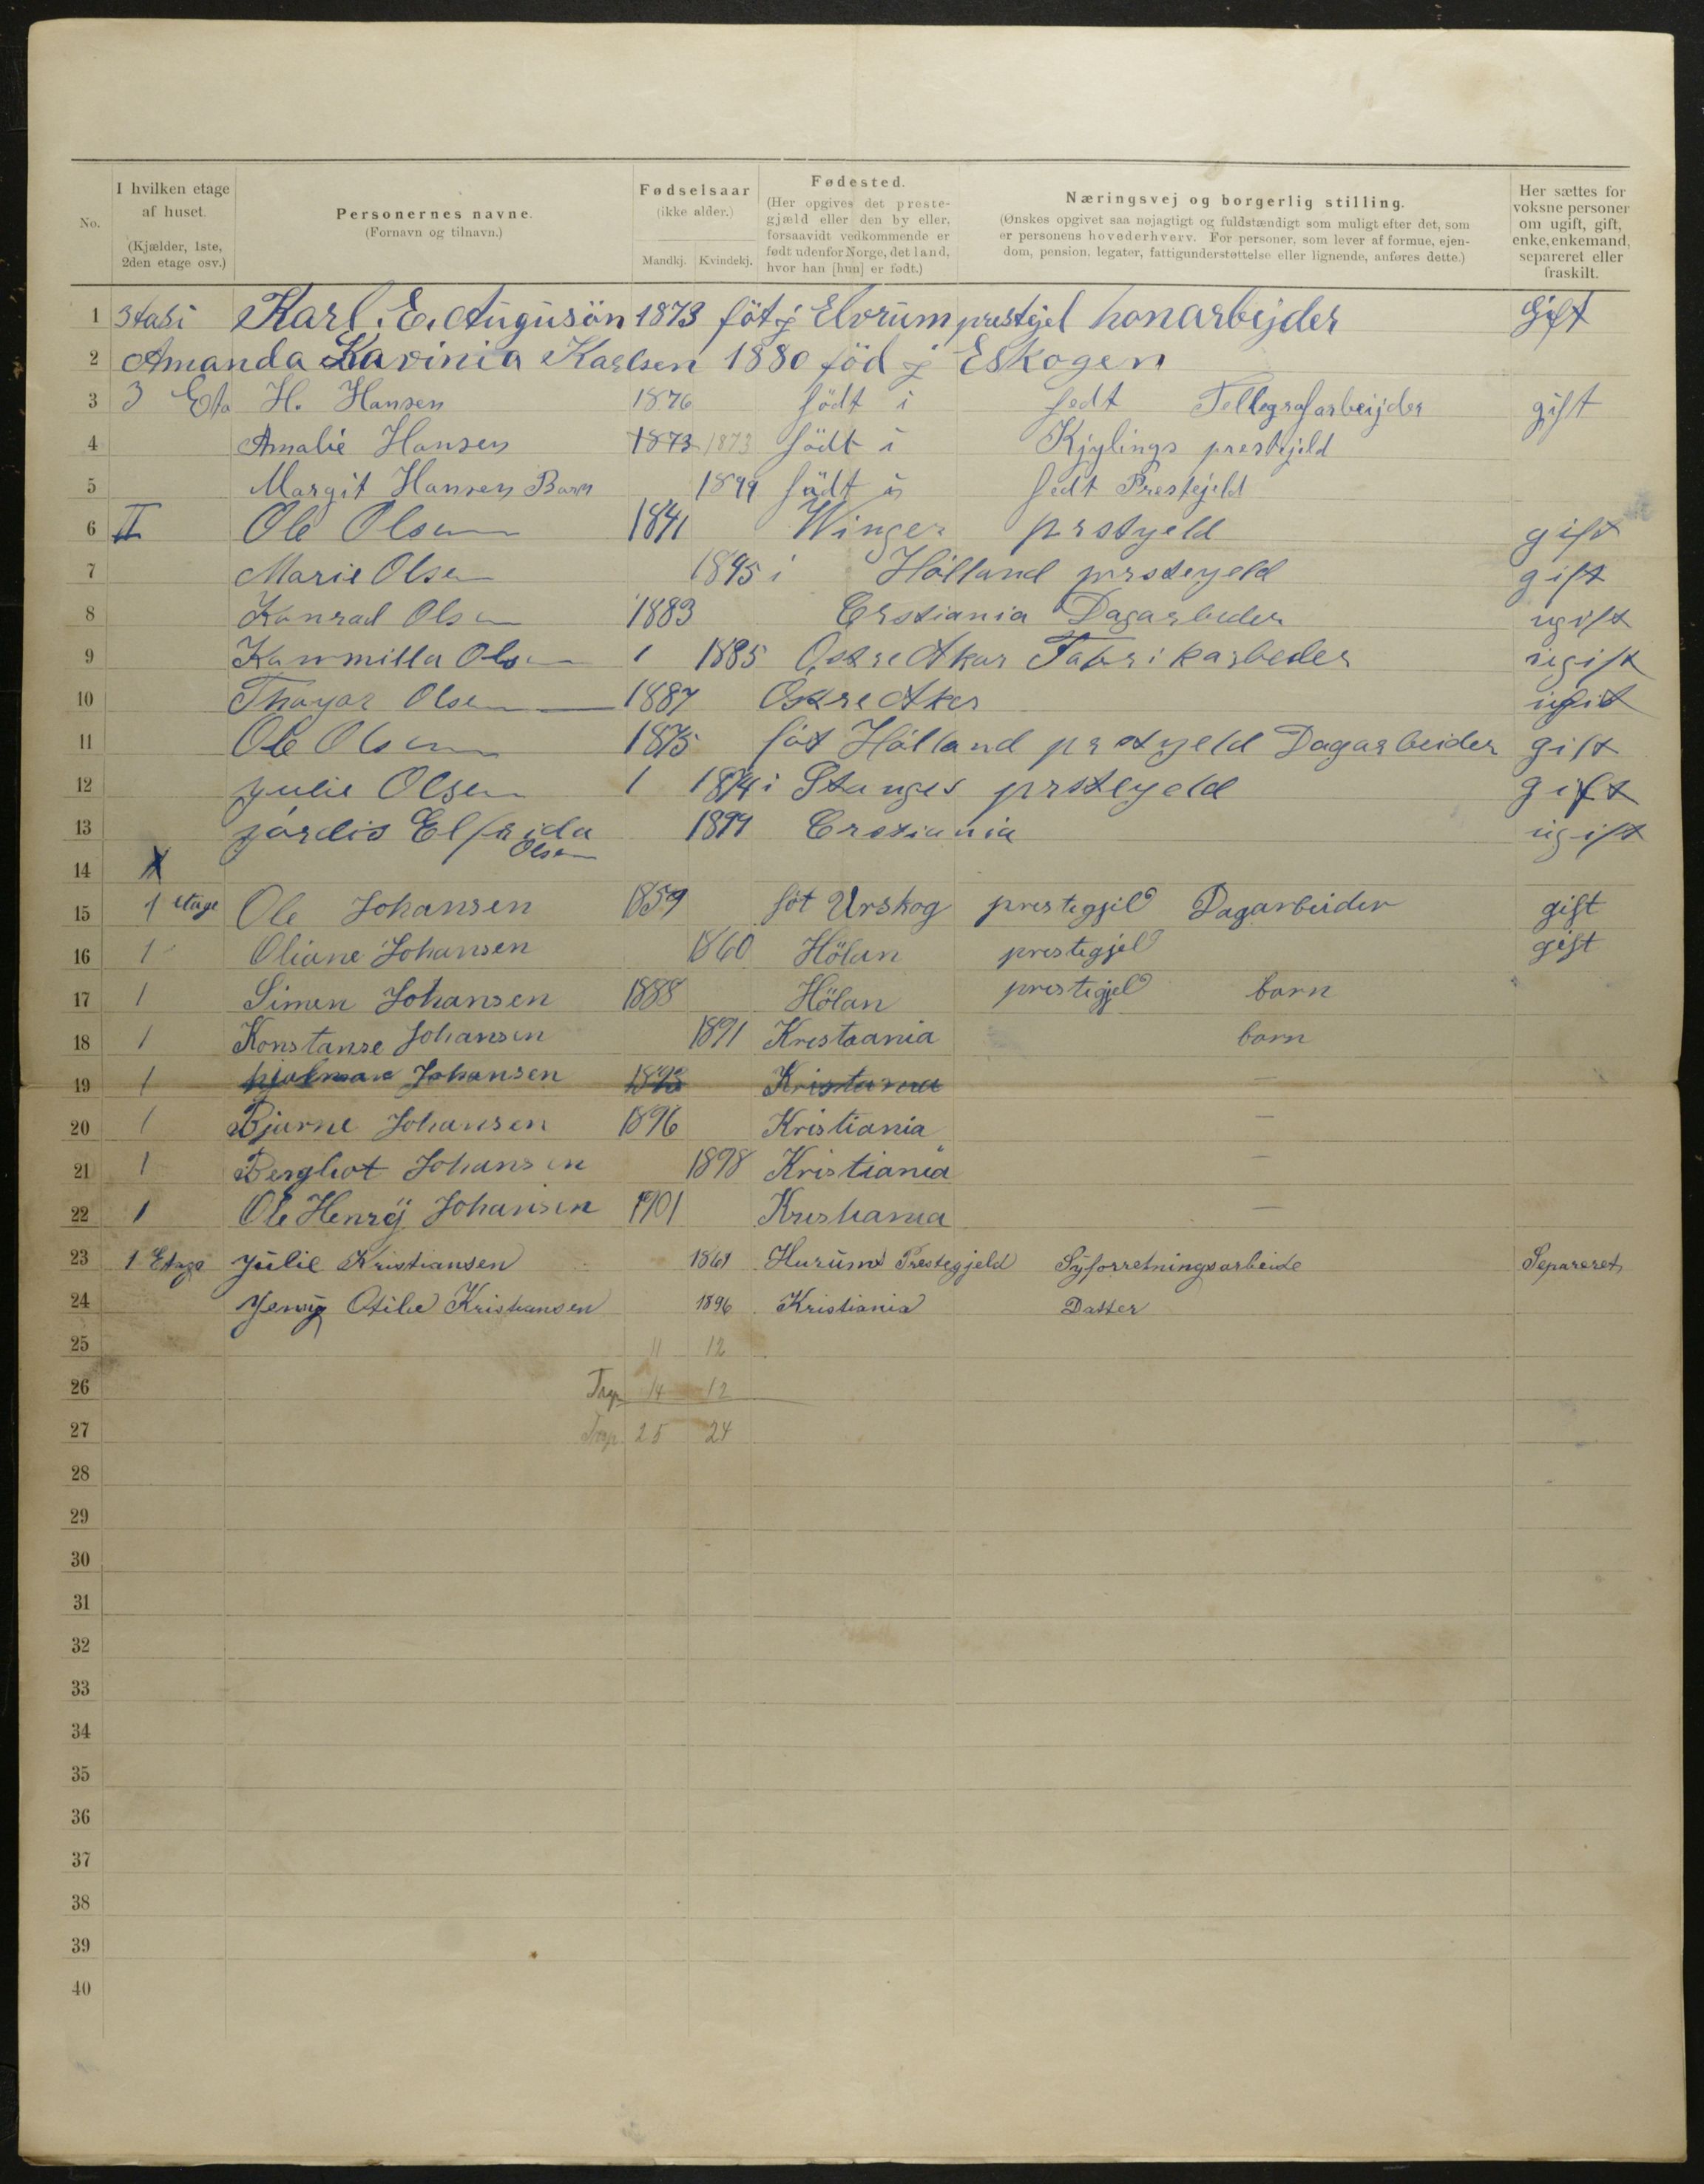 No.
I hvilken etage af huset.
(Kjælder, 1ste, 2den etage osv.)
Personernes navne.
(Fornavn og tilnavn.)
Fødselsaar
(ikke alder.)
Mandkj. Kvindekj.
Fødested.
(Her opgives det preste-
gjæld eller den by eller,
forsaavidt vedkommende er
født udenfor Norge, det land,
hvor han [hun] er født.)
Næringsvej og borgerlig stilling.
(Ønskes opgivet saa nøjagtigt og fuldstændigt som muligt efter det, som
er personens hovederhverv. For personer, som lever af formue, ejen-
dom, pension, legater, fattigunderstøttelse eller lignende, anføres dette.)
Her sættes for
voksne personer
om ugift, gift,
enke, enkemand,
separeret eller
fraskilt.
1 Karl. E. Augusön 1873 föt j Elvrum prestejel honarbejder Gift
2 Amanda Lavinia Karlsen 1880 föd j Eskogen
3 3 Eta H. Hansen 1876 födt i fedt Tellegrafarbeijder gift
4 Amalie Hansen 1873 1873 födt i Kjylings prestejeld
5 Margit Hansen Barn 1899 födt i fedt Prestejeld
6 II Ole Olsen 1841 Winger prstyeld gift
7 Marie Olsen 1845 i Hölland prsteyeld gift
8 Konrad Olsen 1883 Crstiania Dagarbeder ugift
9 Kammilla Olsen 1 1885 Östre Akar Fabrikarbeder ugift
10 Olsen 1887 Östre Aker ugit
11 Ole Olsen 1875 föt Hölland prstyeld Dagarbeider gift
12 Julie Olsen 1 1874 i Stanges prsteyeld gift
13 jördis Elfrida Olsen 1899 Crstiania ugift
14
15 1 etage Ole Johansen 1859 föt Urskog prestegjil Dagarbeider gift
16 1 Oliane Johansen 1860 Hölan prestegjel gift
17 1 Simen Johansen 1888 Hölan prestigjel barn
18 1 Konstanse Johansen 1891 Krestaania barn
19 1 hjalmar Johansen 1893 Kristania —
20 1 Bjarne Johansen 1896 Kristiania —
21 1 Berghot Johansen 1898 Kristiania —
22 1 Ole Henrÿ Johansen 1901 Kristiania —
23 1 Etage Julie Kristiansen Hurums Prestegjeld Syforretningsarbeide Separeret
24 Jenny Otilie Kristiansen 1896 Kristiania Datter
25 11 12
26 14 12
27 25 24
28
29
30
31
32
33
34
35
36
37
38
39
40